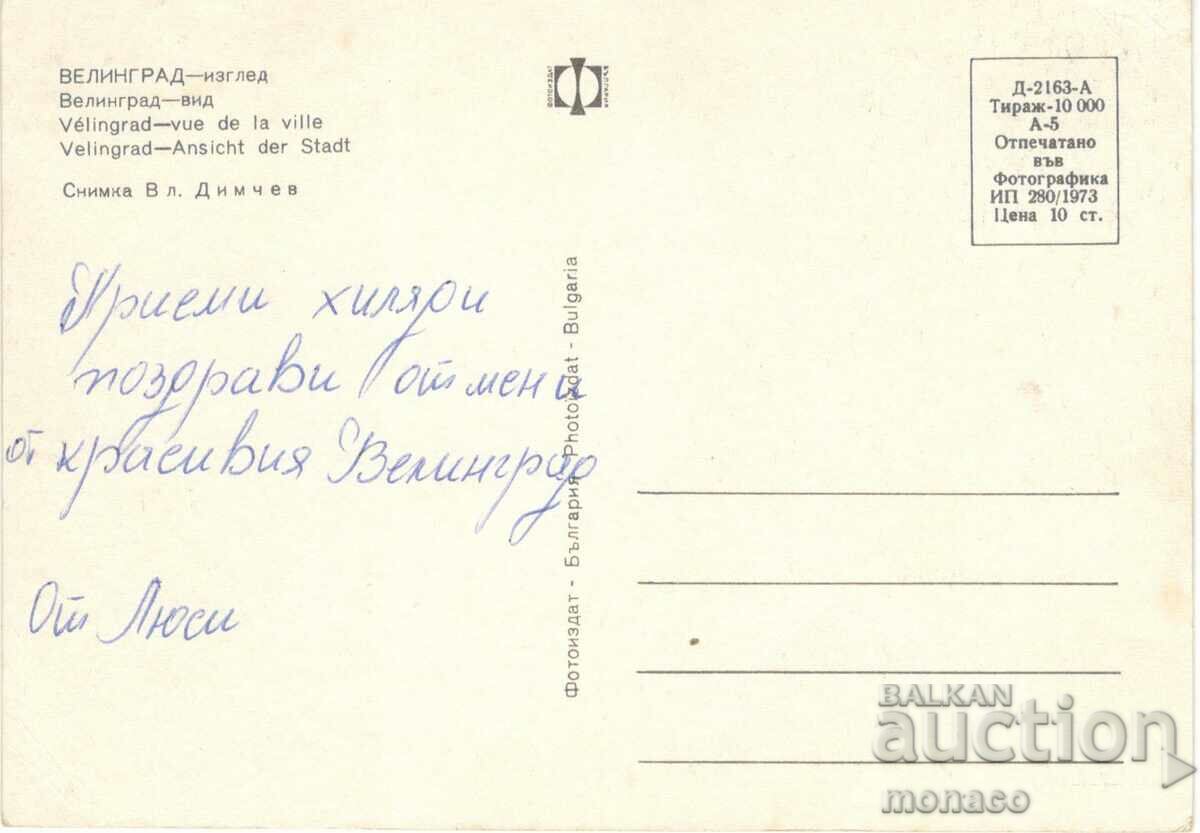 ВЕЛИНГРАД—изглед
Велинград—вид
Vélingrad—vue de la ville
Velingrad—Ansicht der Stadt
Снимка Вл. Димчев
ФОТОИЗДАТ
Д-2163-А
Тираж-10 000
А-5
Отпечатано
във
Фотографика
ИП 280/1973
Цена 10 ст.
Приеми хиляди
поздрави от мени
от красивия Велинград
От Люси
Фотоиздат - България - Photoizdat - Bulgaria
BALKAN
auction
monaco